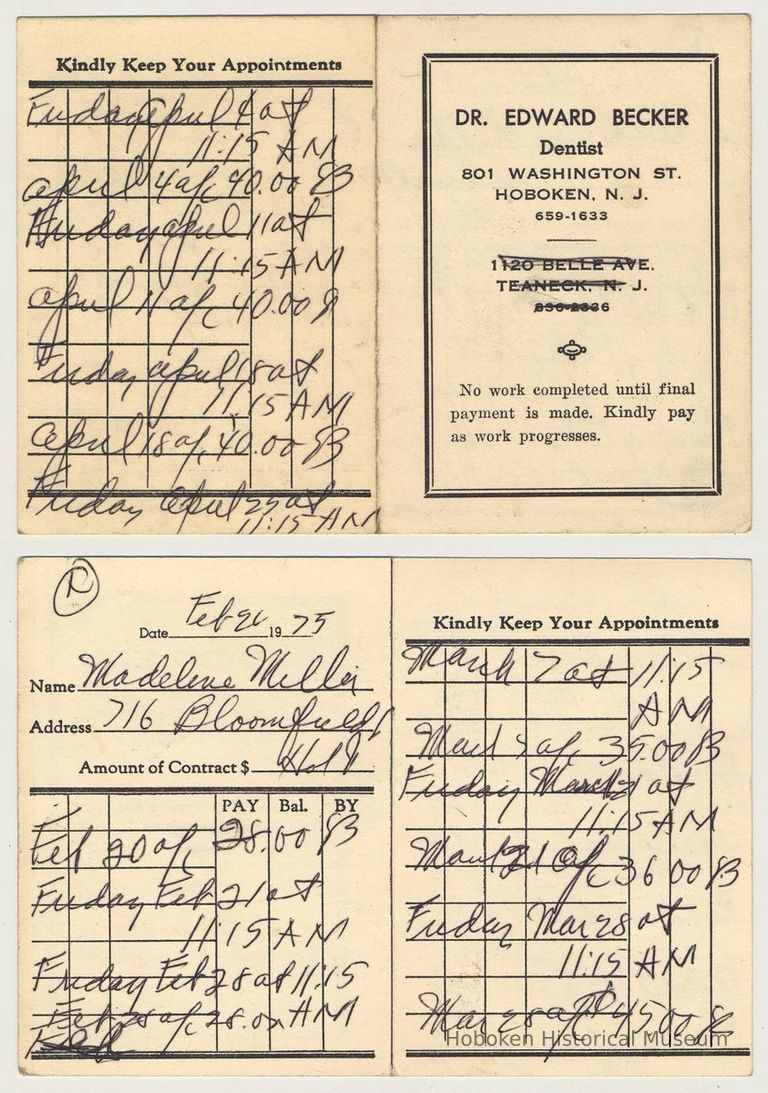 Kindly Keep Your Appointments
Friday April 4 at
11:15 AM
April 4 a/c 40.00 B
Friday April 11 at
11:15 AM
April 11 a/c 40.00 B
Friday April 18 at
11:15 AM
April 18 a/c 40.00 B
Friday April 25 at
11:15 AM
DR. EDWARD BECKER
Dentist
801 WASHINGTON ST.
HOBOKEN, N. J.
659-1633
1120 BELLE AVE.
TEANECK, N. J.
836-2336
No work completed until final
payment is made. Kindly pay
as work progresses.
Date Feb 20 1975
Name Madelene Miller
Address 716 Bloomfield
Amount of Contract $
PAY Bal. BY
Feb 20 a/c 28.00 B
Friday Feb 21 at
11:15 AM
Friday Feb 28 at 11:15
AM
Feb 28 a/c 28.00
Kindly Keep Your Appointments
March 7 at 11:15
AM
Mar 7 a/c 35.00 B
Friday March 21 at
11:15 AM
Mar 21 a/c 36 00 B
Friday Mar 28 at
11:15 AM
Mar 28 a/c $45 00 B
Hoboken Historical Museum